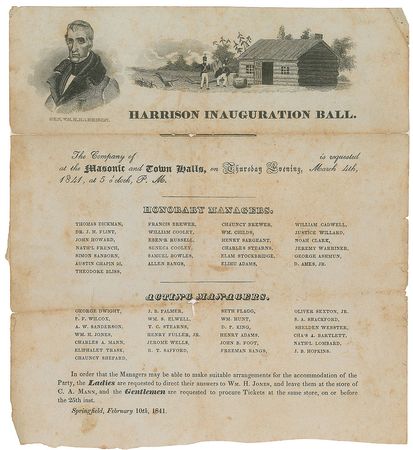 GEN. WM. H. HARRISON.
HARRISON INAUGURATION BALL.
The Company of is requested
at the Masonic and Town Halls, on Thursday Evening, March 4th,
1841, at 5 o'clock, P. M.
HONORARY MANAGERS.
THOMAS DICKMAN, FRANCIS BREWER, CHAUNCY BREWER, WILLIAM CADWELL,
DR. J. H. FLINT, WILLIAM COOLEY, WM. CHILDS, JUSTICE WILLARD,
JOHN HOWARD, EBEN'R RUSSELL, HENRY SARGEANT, NOAH CLARK,
NATH'L FRENCH, SENECA COOLEY, CHARLES STEARNS, JEREMY WARRINER,
SIMON SANBORN, SAMUEL BOWLES, ELAM STOCKBRIDGE, GEORGE ASHMUN,
AUSTIN CHAPIN 2d, ALLEN BANGS, ELIHU ADAMS, D. AMES, JR.
THEODORE BLISS,
ACTING MANAGERS.
GEORGE DWIGHT, J. B. PALMER, SETH FLAGG, OLIVER SEXTON, JR.
P. P. WILCOX, WM. S. ELWELL, WM. HUNT, S. A. SHACKFORD,
A. W. SANDERSON, T. C. STEARNS, D. P. KING, SHELDEN WEBSTER,
WM. H. JONES, HENRY FULLER, JR. HENRY ADAMS, CHA'S A. BARTLETT,
CHARLES A. MANN, JEROME WELLS, JOHN B. FOOT, NATH'L LOMBARD,
ELIPHALET TRASK, H. T. SAFFORD, FREEMAN BANGS, J. B. HOPKINS.
CHAUNCY SHEPARD,
In order that the Managers may be able to make suitable arrangements for the accommodation of the
Party, the Ladies are requested to direct their answers to WM. H. JONES, and leave them at the store of
C. A. MANN, and the Gentlemen are requested to procure Tickets at the same store, on or before
the 25th inst.
Springfield, February 10th, 1841.